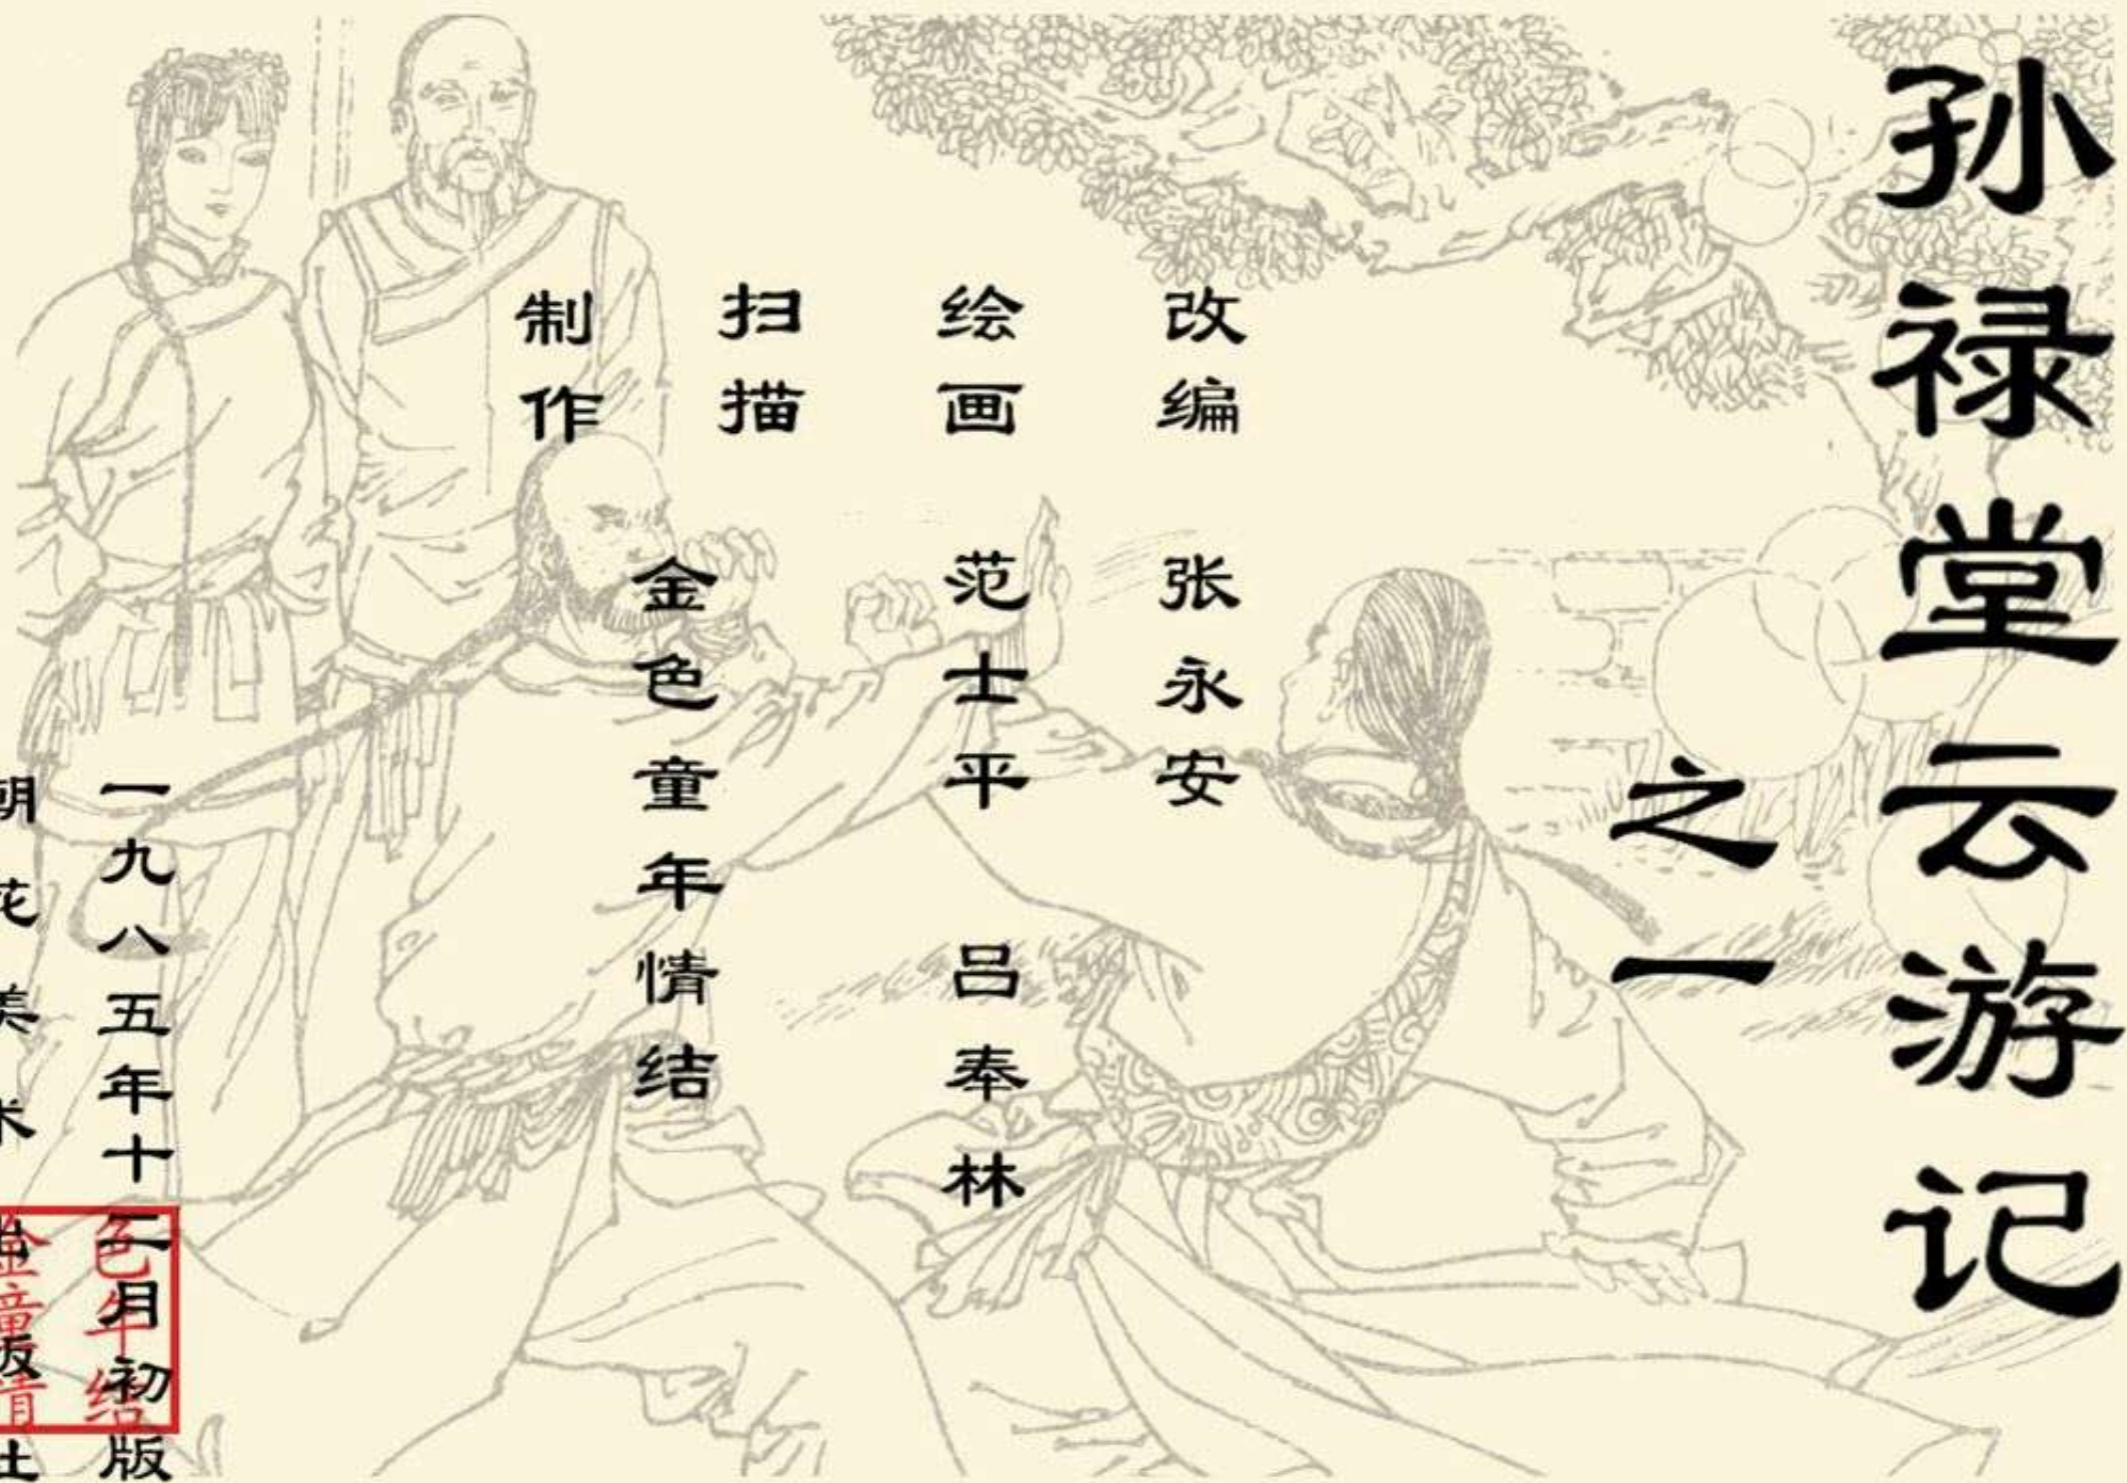 孙禄堂云游记
之一
改编 张永安
绘画 范士平 吕奉林
扫描
制作
金色童年情结
一九八五年十二月初版
朝花美术出版社
金色童年情结